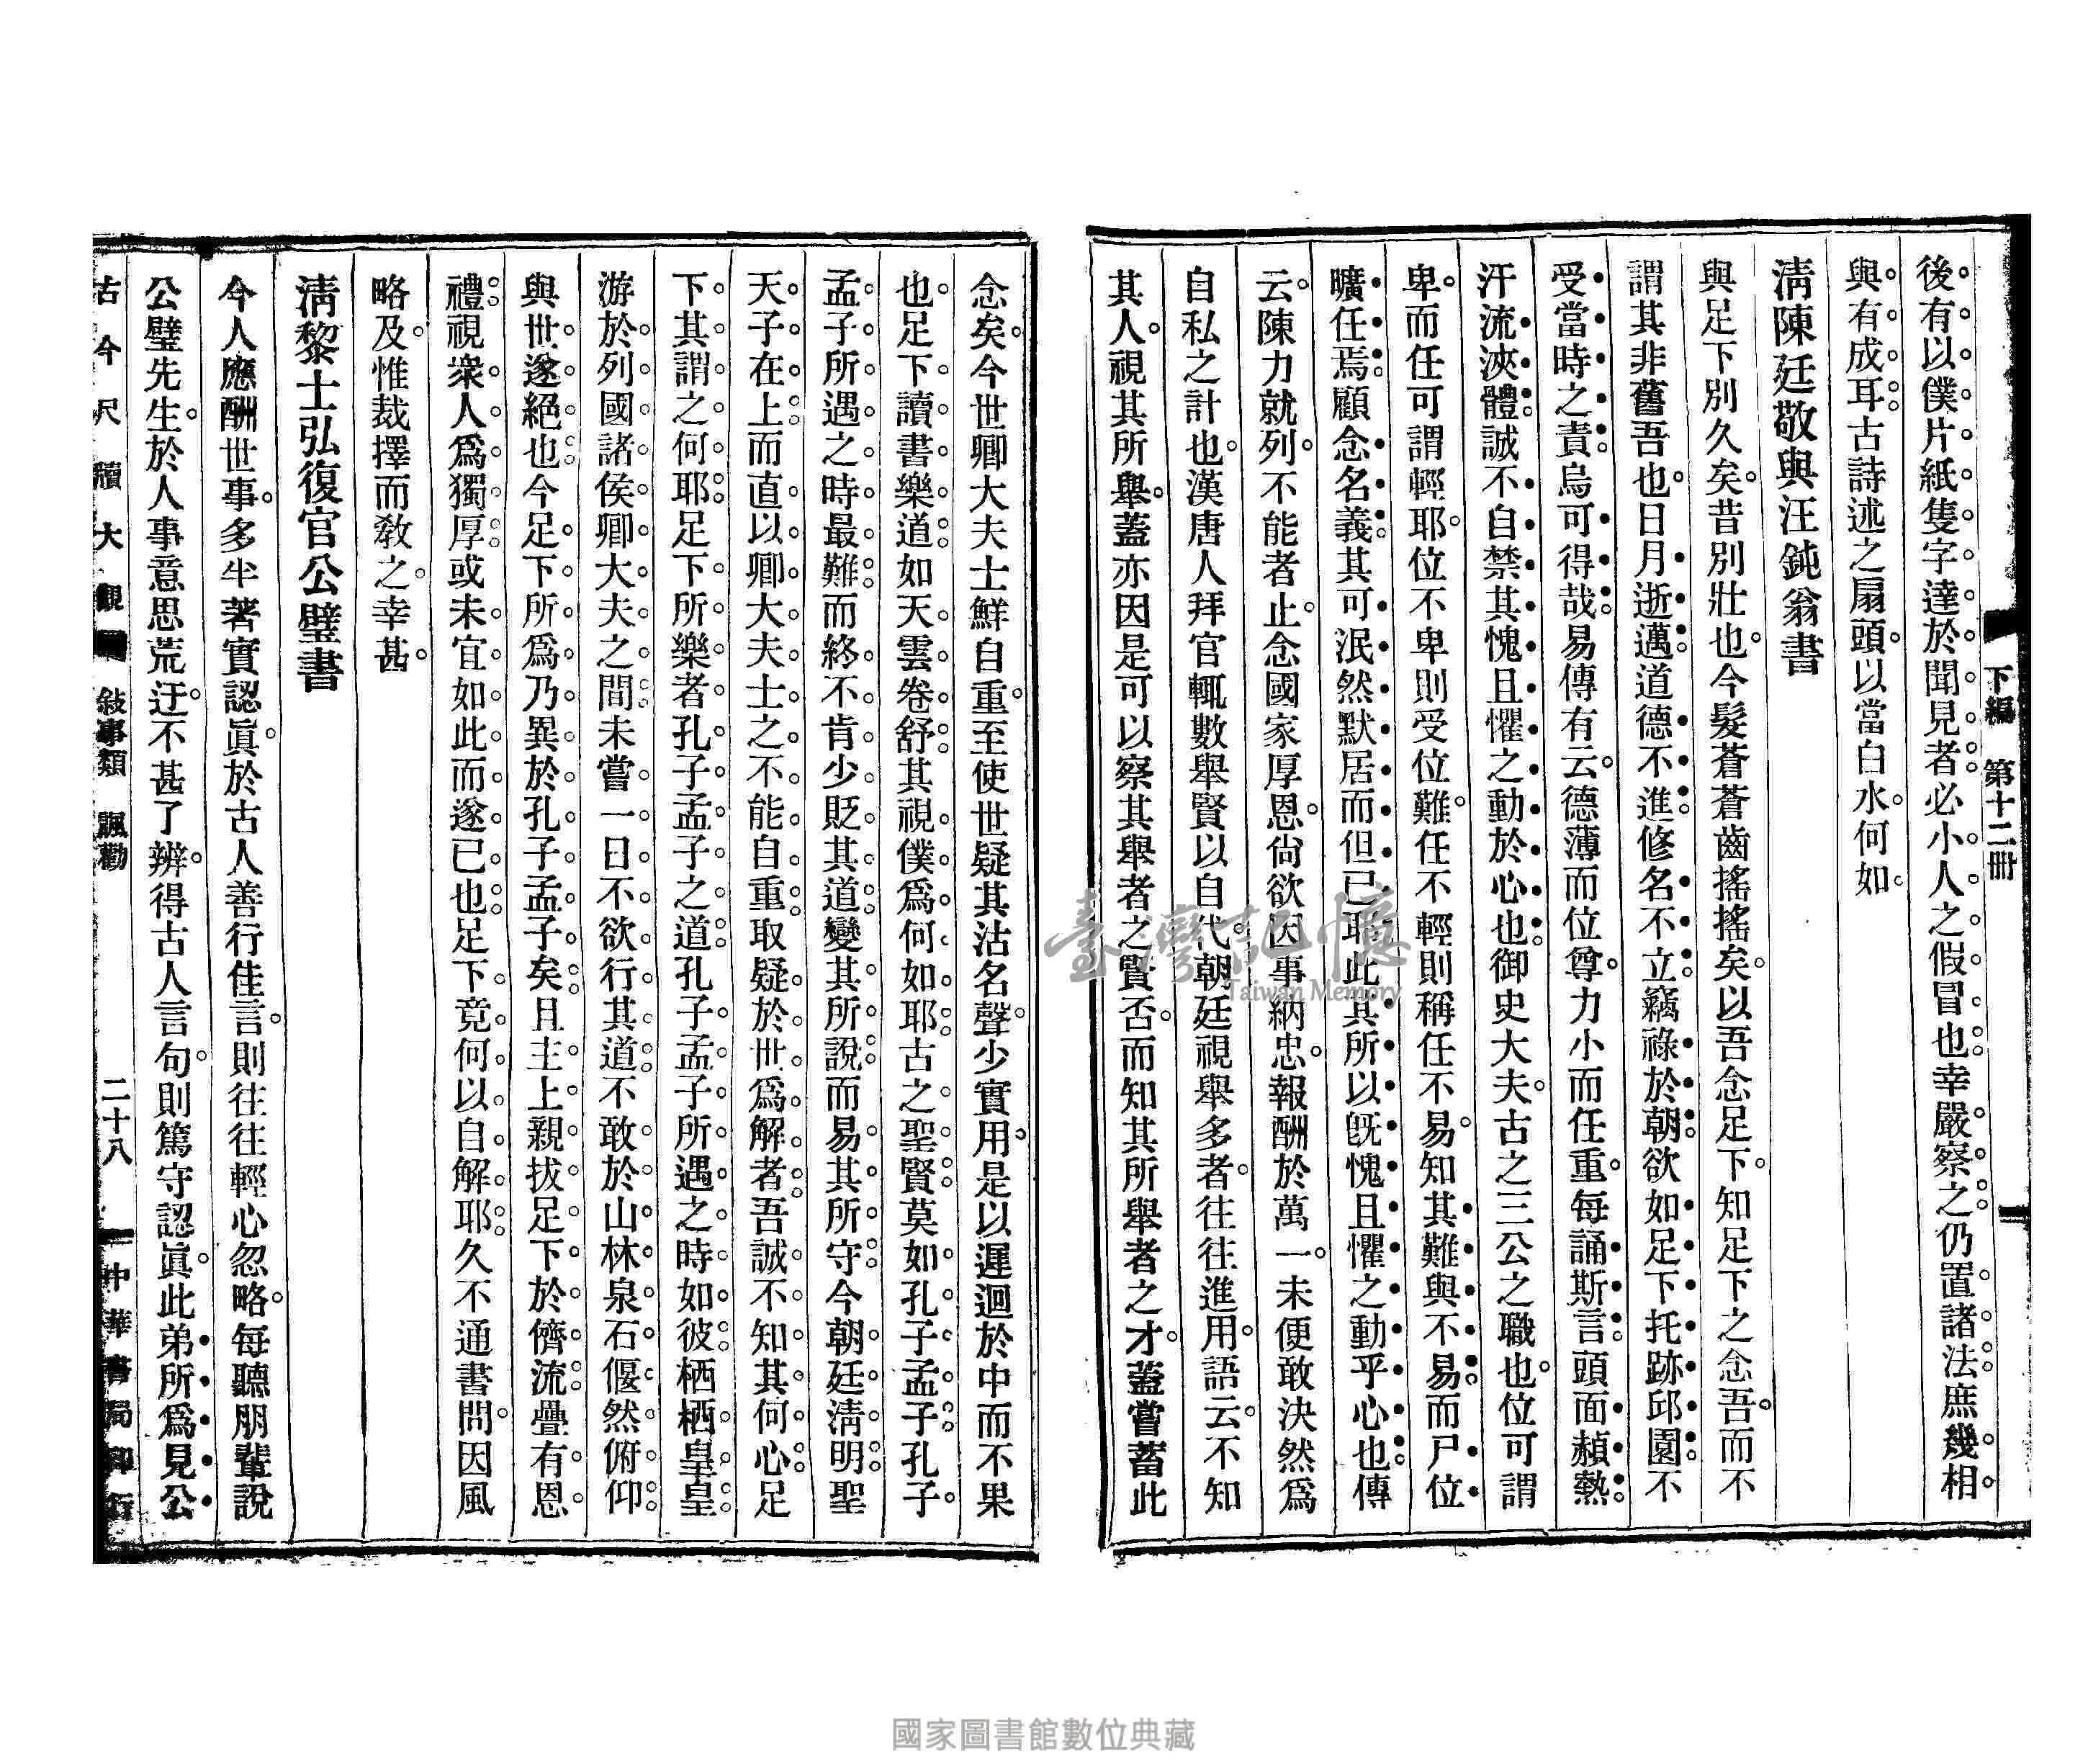 下編　第十二冊
後有以僕片紙隻字達於聞見者必小人之假冒也幸嚴察之仍置諸法庶幾相
與有成耳古詩述之扇頭以當白水何如
淸陳廷敬與汪鈍翁書
與足下別久矣昔別壯也今髮蒼蒼齒搖搖矣以吾念足下知足下之念吾而不
謂其非舊吾也日月逝邁道德不進修名不立竊祿於朝欲如足下托跡邱園不
受當時之責烏可得哉易傳有云德薄而位尊力小而任重每誦斯言頭面赬熱
汗流浹體誠不自禁其愧且懼之動於心也御史大夫古之三公之職也位可謂
卑而任可謂輕耶位不卑則受位難任不輕則稱任不易知其難與不易而尸位
曠任焉顧念名義其可泯然默居而但已耶此其所以旣愧且懼之動乎心也傳
云陳力就列不能者止念國家厚恩尙欲因事納忠報酬於萬一未便敢決然爲
自私之計也漢唐人拜官輒數舉賢以自代朝廷視舉多者往往進用語云不知
其人視其所舉蓋亦因是可以察其舉者之賢否而知其所舉者之才蓋嘗蓄此
念矣今世卿大夫士鮮自重至使世疑其沽名聲少實用是以遲迴於中而不果
也足下讀書樂道如天雲卷舒其視僕爲何如耶古之聖賢莫如孔子孟子孔子
孟子所遇之時最難而終不肯少貶其道變其所說而易其所守今朝廷淸明聖
天子在上而直以卿大夫士之不能自重取疑於世爲解者吾誠不知其何心足
下其謂之何耶足下所樂者孔子孟子之道孔子孟子所遇之時如彼栖栖皇皇
游於列國諸侯卿大夫之間未嘗一日不欲行其道不敢於山林泉石偃然俯仰
與世遂絕也今足下所爲乃異於孔子孟子矣且主上親拔足下於儕流疊有恩
禮視衆人爲獨厚或未宜如此而遂已也足下竟何以自解耶久不通書問因風
略及惟裁擇而敎之幸甚
淸黎士弘復官公璧書
今人應酬世事多半著實認眞於古人善行佳言則往往輕心忽略每聽朋輩說
公璧先生於人事意思荒迂不甚了辨得古人言句則篤守認眞此弟所爲見公
古今尺牘大觀　敍事類　諷勸　二十八　中華書局印行
臺灣記憶
Taiwan Memory
國家圖書館數位典藏